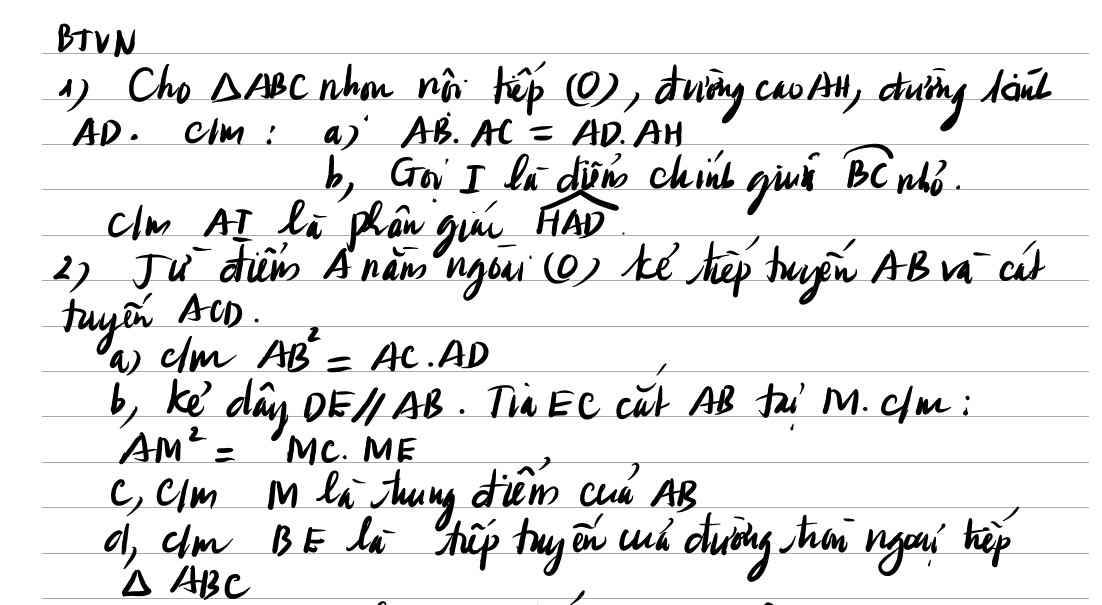 BTVN
1) Cho △ABC nhọn nội tiếp (O), đường cao AH, đường kính
AD. c/m: a) AB.AC = AD.AH
b, Gọi I là điểm chính giữa BC nhỏ.
c/m AI là phân giác HAD.
2) Từ điểm A nằm ngoài (O) kẻ tiếp tuyến AB và cát
tuyến ACD.
a) c/m AB² = AC.AD
b, kẻ dây DE // AB. Tia EC cắt AB tại M. c/m:
AM² = MC.ME
c, c/m M là trung điểm của AB
d, c/m BE là tiếp tuyến của đường tròn ngoại tiếp
△ ABC